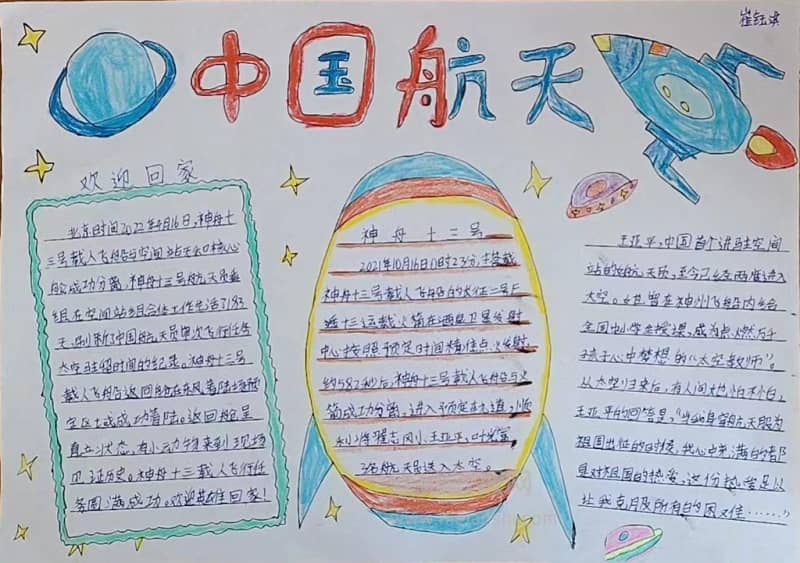 崔钰淇
中国航天
欢迎回家
北京时间2022年4月16日,神舟十
三号载人飞船与空间站天和核心
舱成功分离,神舟十三号航天员乘
组在空间站组合体工作生活了183
天,刷新了中国航天员单次飞行任务
太空驻留时间的纪录。神舟十三号
载人飞船返回舱在东风着陆场预
定区域成功着陆。返回舱呈
直立状态,有小动物来到现场
见证历史。神舟十三载人飞行任
务圆满成功。欢迎英雄回家!
神舟十三号
2021年10月16日0时23分,搭载
神舟十三号载人飞船的长征二号F
遥十三运载火箭在酒泉卫星发射
中心按照预定时间精准点火发射,
约582秒后,神舟十三号载人飞船与火
箭成功分离,进入预定轨道,顺
利将翟志刚、王亚平、叶光富
3名航天员送入太空。
王亚平,中国首个进驻空间
站的女航天员,至今已经两度进入
太空。她曾在神州飞船内给
全国中小学生授课,成为点燃万千
孩子心中梦想的“太空教师”。
从太空归来后,有人问她怕不怕,
王亚平的回答是,“当身穿航天服为
祖国出征的时候,我心中满满的都
是对祖国的热爱,这份热爱足以
让我克服所有的困难……”